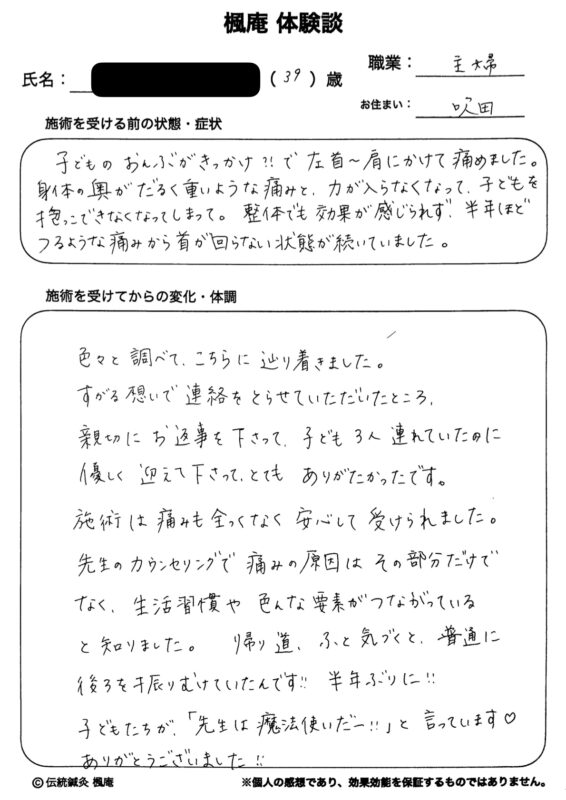 楓庵 体験談
職業： 主婦
氏名： （39）歳
お住まい： 吹田
施術を受ける前の状態・症状
子どもの おんぶがきっかけ?!で 左首〜肩にかけて痛めました。
身体の奥がだるく重いような痛みと、力が入らなくなって、子どもを
抱っこできなくなってしまって。 整体でも効果が感じられず、半年ほど
つるような痛みから首が回らない状態が続いていました。
施術を受けてからの変化・体調
色々と調べて、こちらに辿り着きました。
すがる想いで連絡をとらせていただいたところ、
親切にお返事を下さって、子ども3人連れていたのに
優しく迎えて下さって、とてもありがたかったです。
施術は痛みも全くなく安心して受けられました。
先生のカウンセリングで痛みの原因はその部分だけで
なく、生活習慣や色んな要素がつながっている
と知りました。 帰り道、ふと気づくと、普通に
後ろを振りむけていたんです!! 半年ぶりに!!
子どもたちが、「先生は魔法使いだー!!」と言っています♡
ありがとうございました!!
©伝統鍼灸 楓庵
※個人の感想であり、効果効能を保証するものではありません。